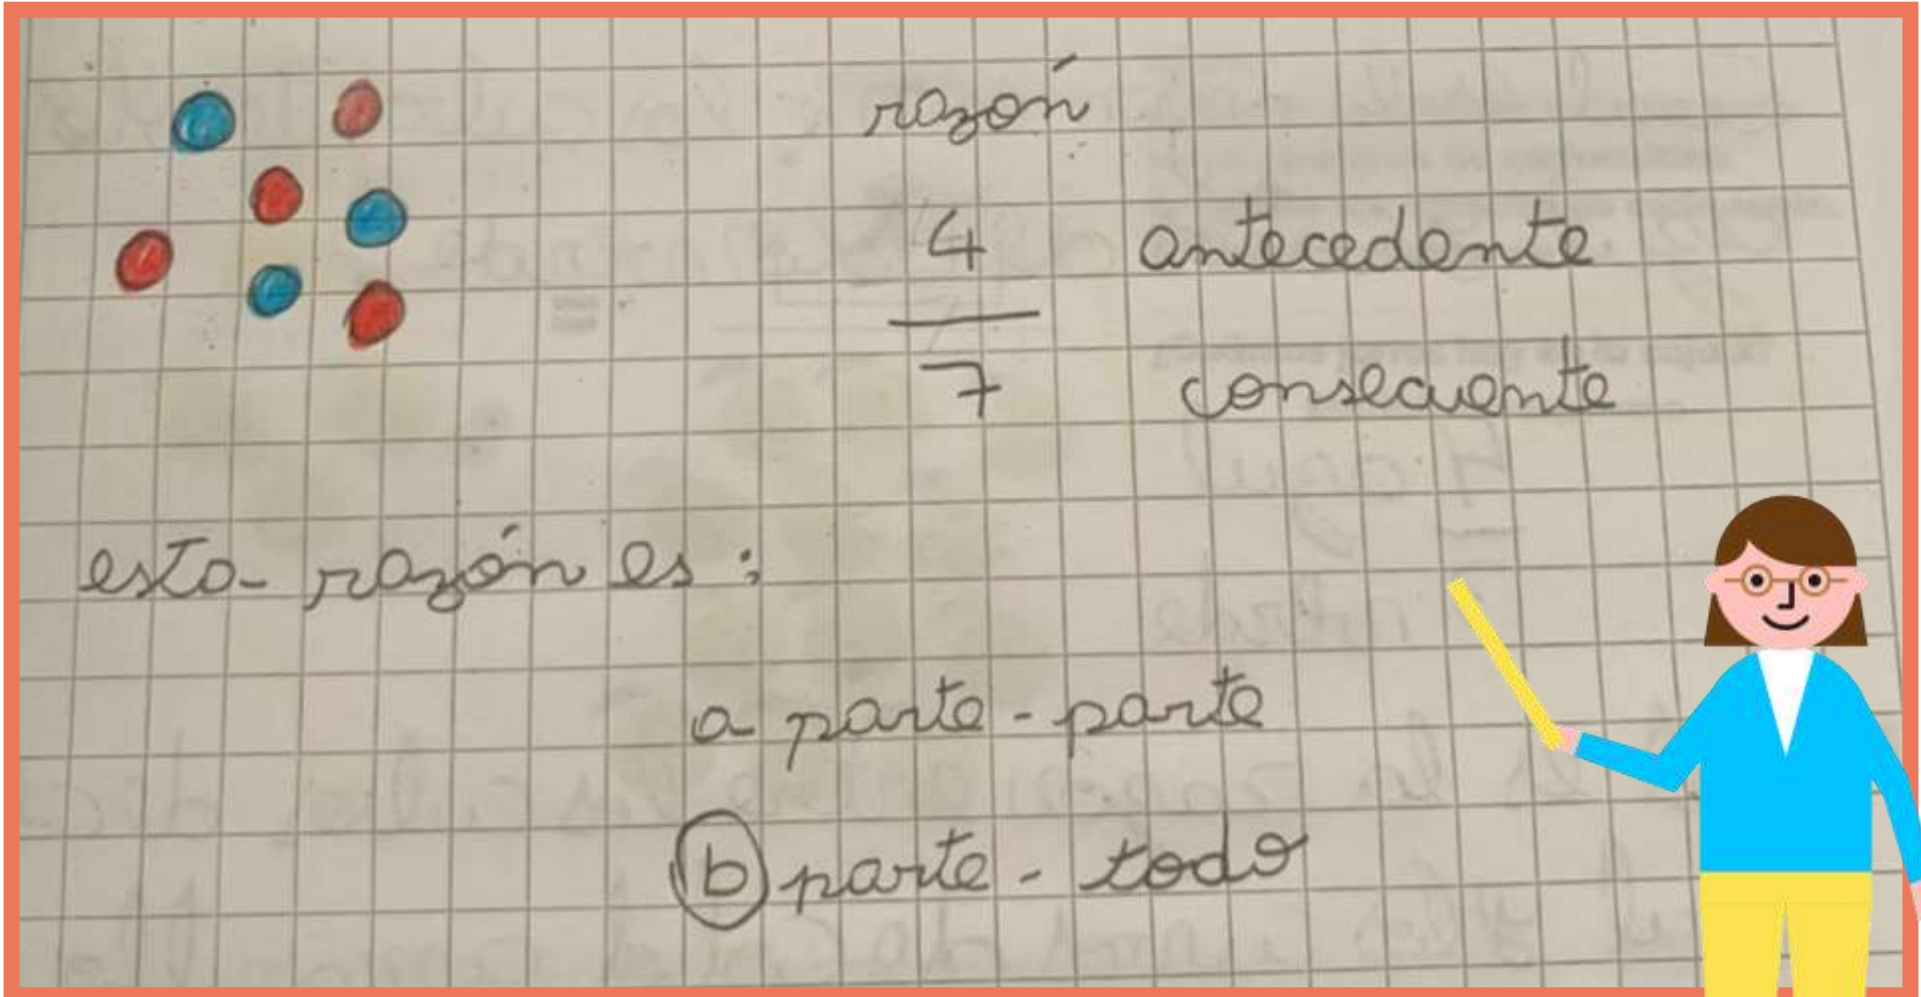 razón
4 antecedente
7 consecuente
esta razón es:
a parte-parte
b parte-todo